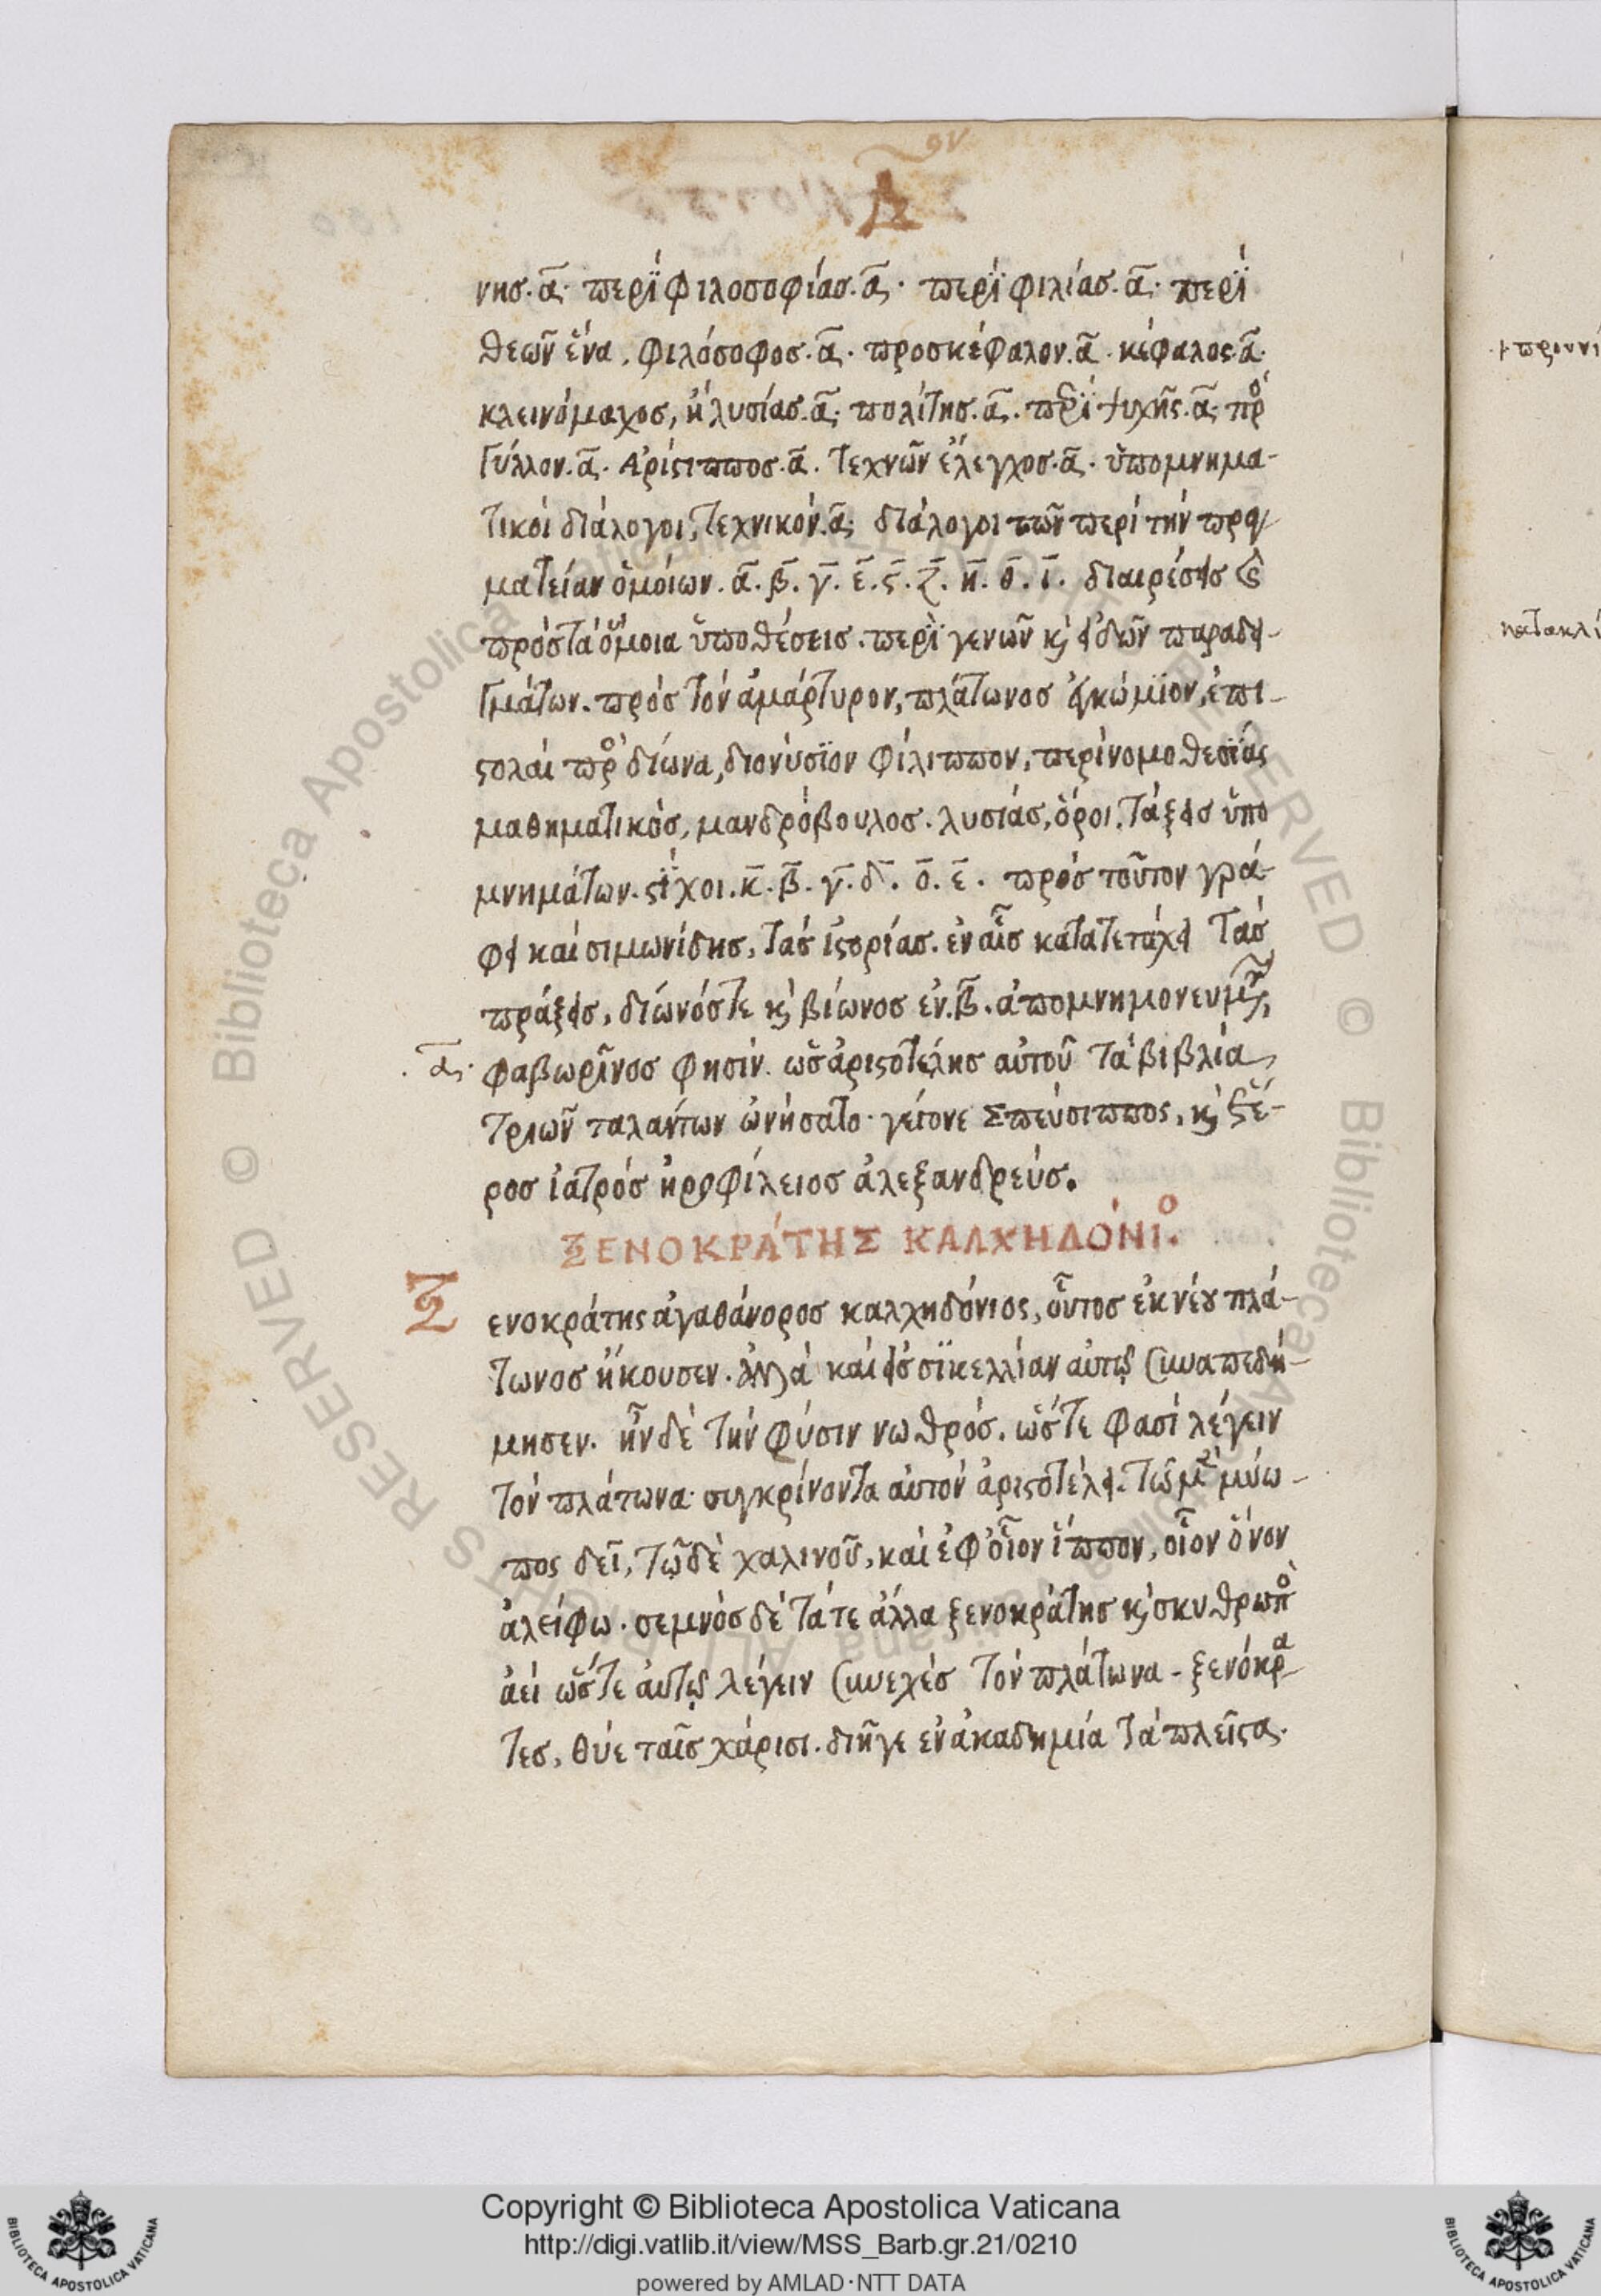 Δ ον
νησ. ᾱ. περὶ φιλοσοφίασ. ᾱ. περὶ φιλίασ. ᾱ. περὶ
θεῶν ἕνα. φιλόσοφοσ. ᾱ. προσκέφαλον. ᾱ. κέφαλος. ᾱ.
κλεινόμαχοσ, ἢ λυσίασ. ᾱ. πολίτησ. ᾱ. πρὶ ψυχῆς. ᾱ. πρὸ
Γύλλον. ᾱ. Αρίϛιπποσ. ᾱ. τεχνῶν ἔλεγχοσ. ᾱ. ὑπομνημα-
τικοὶ διάλογοι, τεχνικόν. ᾱ. διάλογοι τῶν περὶ τὴν πρα
ματείαν ὁμοίων. ᾱ. β̄. γ̄. ε̄. ϛ̄. ζ̄. η̄. θ̄. ῑ. διαιρέσεισ
πρὸσ τὰ ὅμοια ὑποθέσεισ. περὶ γενῶν κὶ εἰδῶν παραδει-
Γμάτων. πρὸσ τὸν ἀμάρτυρον, πλάτωνοσ ἐγκώμϊον, ἐπι-
ϛολαὶ πρὸ δίωνα, διονύσϊον φίλιππον, περὶ νομοθεσϊάς
μαθηματικὸσ, μανδρόβουλοσ. λυσίάσ, ὅροι. τάξεισ ὑπο
μνημάτων. ϛίχοι. κ̄. β̄. γ̄. δ̄. ο̄. ε̄. πρὸσ τοῦτον γρά-
φει καὶ σιμωνίδησ, τὰσ ἱϛορίασ. ἐν αἷσ κατατετάχει τὰσ
πράξεισ, δίωνόσ τε κὶ βίωνοσ ἐν. β̄. ἀπομνημονευμ
.ᾱ. φαβωρῖνοσ φησὶν. ὡσ ἀριϛοτέλησ αὐτοῦ τὰ βιβλία,
τριῶν ταλαντων ὠνήσατο. γέγονε Σπεύσιππος, κὶ ἕτε-
ροσ ἰατρόσ ἡροφίλειοσ ἀλεξανδρεύσ.
ΞΕΝΟΚΡΆΤΗΣ ΚΑΛΧΗΔΌΝΙο.
Ξ
ενοκράτης ἀγαθάνοροσ καλχηδόνιος, οὗτοσ ἐκ νέου πλά-
τωνοσ ἤκουσεν. ἀλλὰ καὶ εἰσ σϊκελλίαν αὐτῷ συναπεδή-
μησεν. ἦν δὲ τὴν φύσιν νωθρόσ. ὥστε φασὶ λέγειν
τὸν πλάτωνα. συγκρίνοντα αὐτὸν ἀριϛοτέλει. τῷ μὲ μύω-
πος δεῖ, τῷ δὲ χαλινοῦ, καὶ ἐφ' οἷον ἵππον, οἷον ὄνον
ἀλείφω. σεμνὸσ δὲ τά τε ἄλλα ξενοκράτησ κὶ σκυθρωπὸ
ἀεὶ ὥστε αὐτῷ λέγειν συνεχὲσ τὸν πλάτωνα - ξενόκρα
τεσ, θύε ταῖσ χάρισι. διῆγε ἐν ἀκαδημία τὰ πλεῖϛα.
Copyright © Biblioteca Apostolica Vaticana
http://digi.vatlib.it/view/MSS_Barb.gr.21/0210
powered by AMLAD·NTT DATA